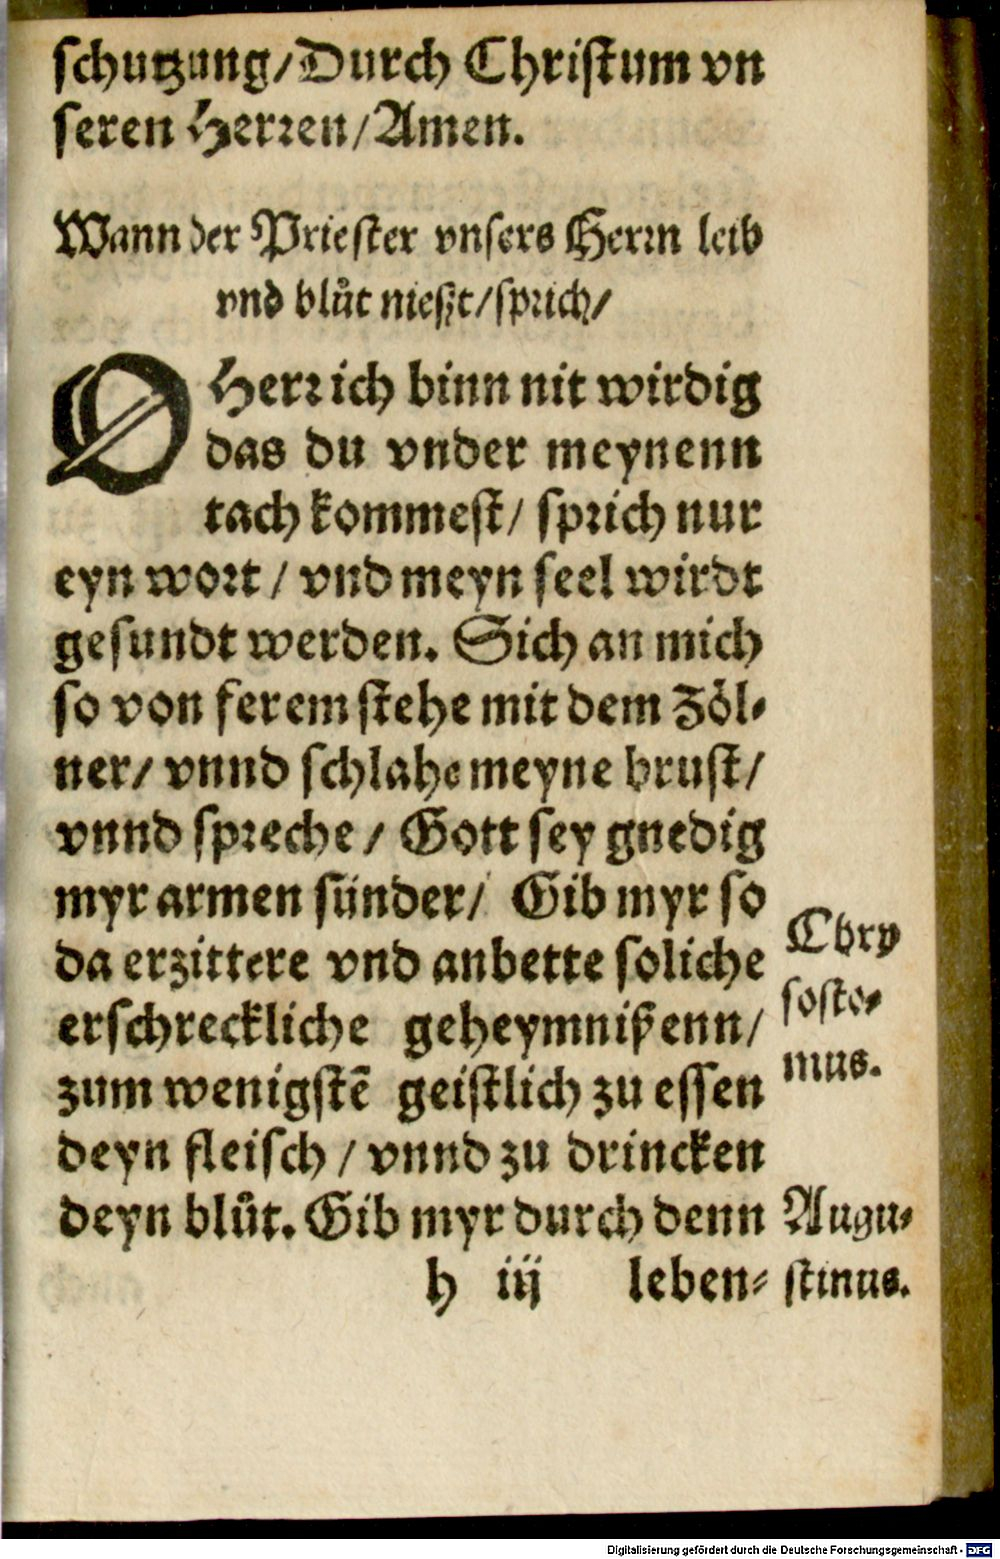 schutzung/Durch Christum vn
seren Herren/Amen.
Wann der Priester vnsers Herrn leib
vnd blůt nießt/sprich/
O Herr ich binn nit wirdig
das du vnder meynenn
tach kommest/ sprich nur
eyn wort / vnd meyn seel wirdt
gesundt werden. Sich an mich
so von ferem stehe mit dem Zöl-
ner/ vnnd schlahe meyne brust/
vnnd spreche / Gott sey gnedig
myr armen sünder/ Gib myr so
da erzittere vnd anbette soliche
erschreckliche geheymnißenn/
zum wenigstē geistlich zu essen
deyn fleisch / vnnd zu drincken
deyn blůt. Gib myr durch denn
h iij leben-
Chry
sosto-
mus.
Augu-
stinus.
Digitalisierung gefördert durch die Deutsche Forschungsgemeinschaft - DFG